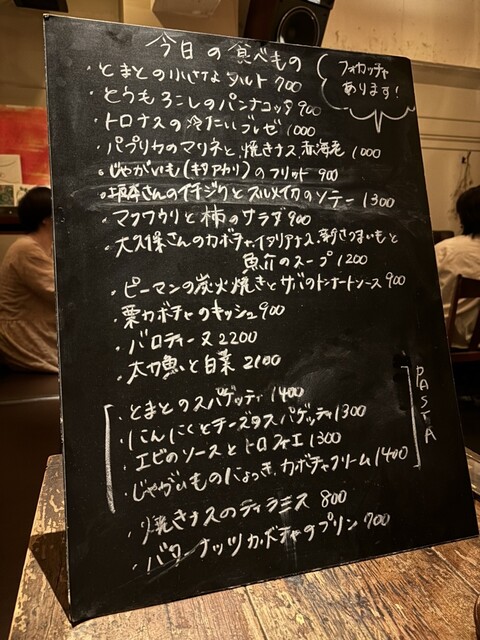 今日の食べもの
フォカッチャ
あります!
・とまとの小さなタルト 700
・とうもろこしのパンナコッタ 900
・トロナスの冷たいブレゼ 1000
・パプリカのマリネと、焼きナス、赤海老 1000
・じゃがいも(キタアカリ)のフリット 900
さんのイチジクとスルメイカのソテー 1300
・マクワウリと柿のサラダ 900
・大久保さんのカボチャ、イタリアナス、新さつまいもと
魚介のスープ 1200
・ピーマンの炭火焼きとサバのトンナートソース 900
栗カボチャのキッシュ 900
・バロティーヌ 2200
・太刀魚と白菜 2100
PASTA
・とまとのスパゲッティ 1400
・にんにくとチーズのスパゲッティ 1300
・エビのソースとトロフィエ 1300
・じゃがいものにょっき、カボチャクリーム 1400
・焼きナスのティラミス 800
・バターナッツカボチャのプリン 700